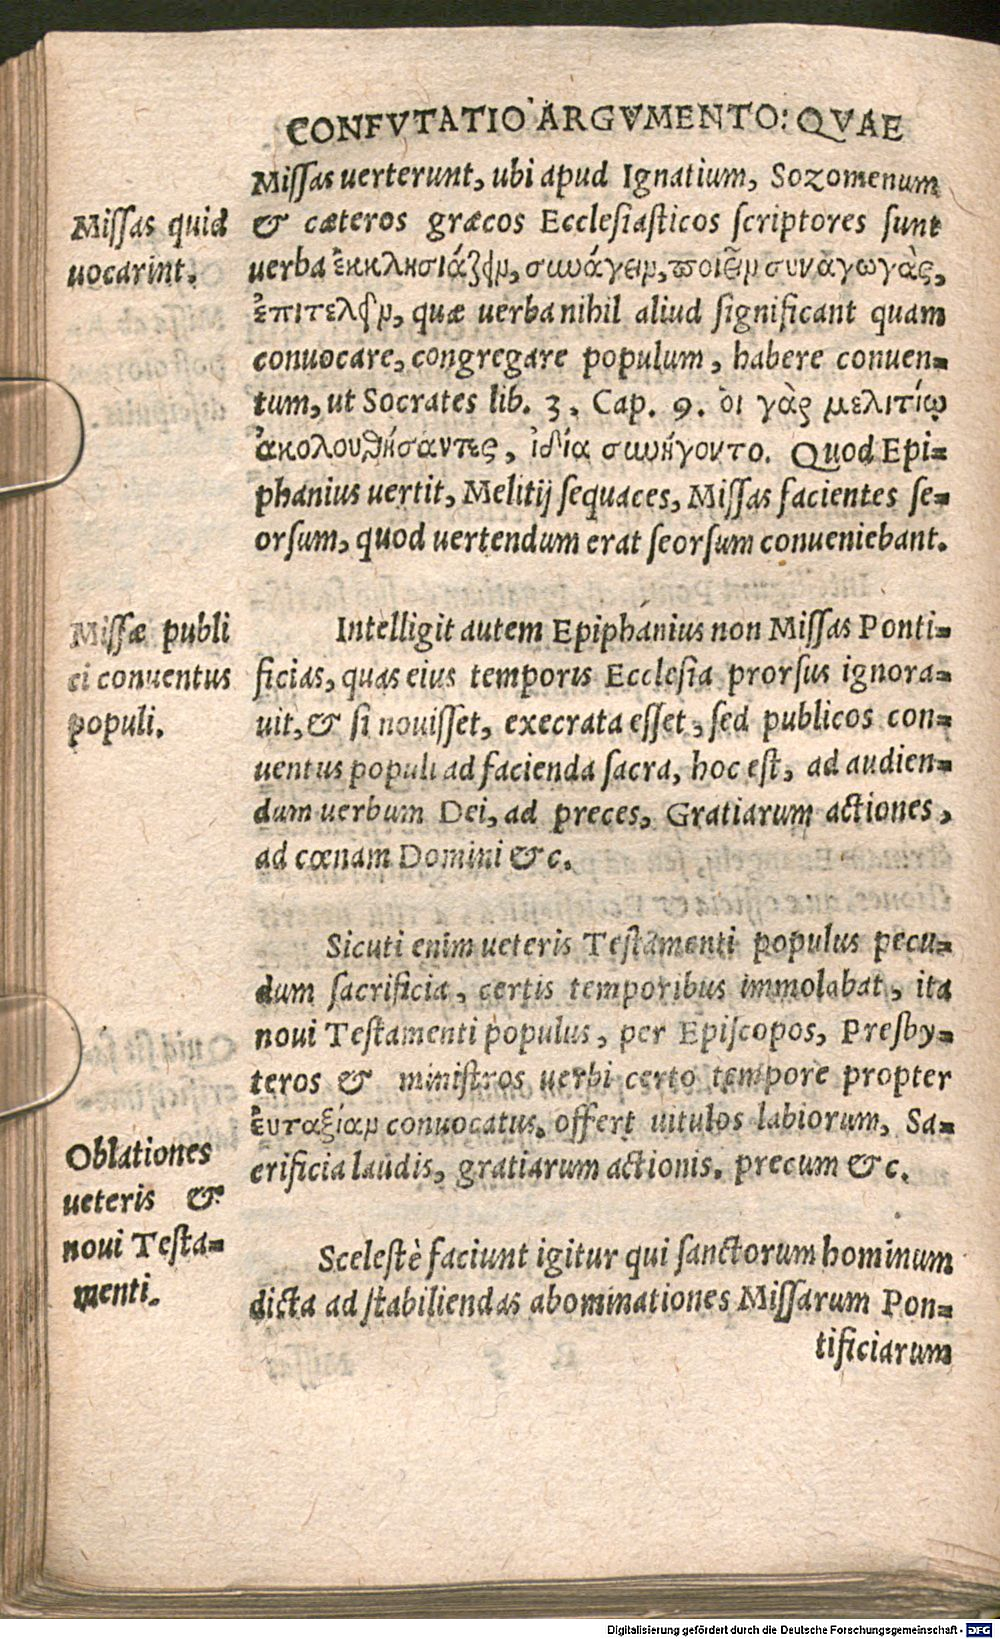 CONFVTATIO ARGVMENTO: QVAE
Missas uerterunt, ubi apud Ignatium, Sozomenum
Missas quid
uocarint.
& cæteros græcos Ecclesiasticos scriptores sunt
uerba ἐκκλησιάζειν, συνάγειν, ποιεῖν συναγωγὰς,
ἐπιτελεῖν, quæ uerba nihil aliud significant quam
conuocare, congregare populum, habere conuen=
tum, ut Socrates lib. 3. Cap. 9. ὁι γὰρ μελιτίῳ
ἀκολουθήσαντες, ἰδία συνήγοντο. Quod Epi=
phanius uertit, Melitij sequaces, Missas facientes se=
orsum, quod uertendum erat seorsum conueniebant.
Missæ publi
ci conuentus
populi.
Intelligit autem Epiphanius non Missas Ponti=
ficias, quas eius temporis Ecclesia prorsus ignora=
uit, & si nouisset, execrata esset, sed publicos con=
uentus populi ad facienda sacra, hoc est, ad audien=
dum uerbum Dei, ad preces, Gratiarum actiones,
ad cœnam Domini &c.
Sicuti enim ueteris Testamenti populus pecu=
dum sacrificia, certis temporibus immolabat, ita
noui Testamenti populus, per Episcopos, Presby=
teros & ministros uerbi certo tempore propter
ἐυταξίαν conuocatus. offert uitulos labiorum, Sa=
crificia laudis, gratiarum actionis. precum &c.
Oblationes
ueteris &
noui Testa=
menti.
Scelestè faciunt igitur qui sanctorum hominum
dicta ad stabiliendas abominationes Missarum Pon=
tificiarum
Digitalisierung gefördert durch die Deutsche Forschungsgemeinschaft - DFG